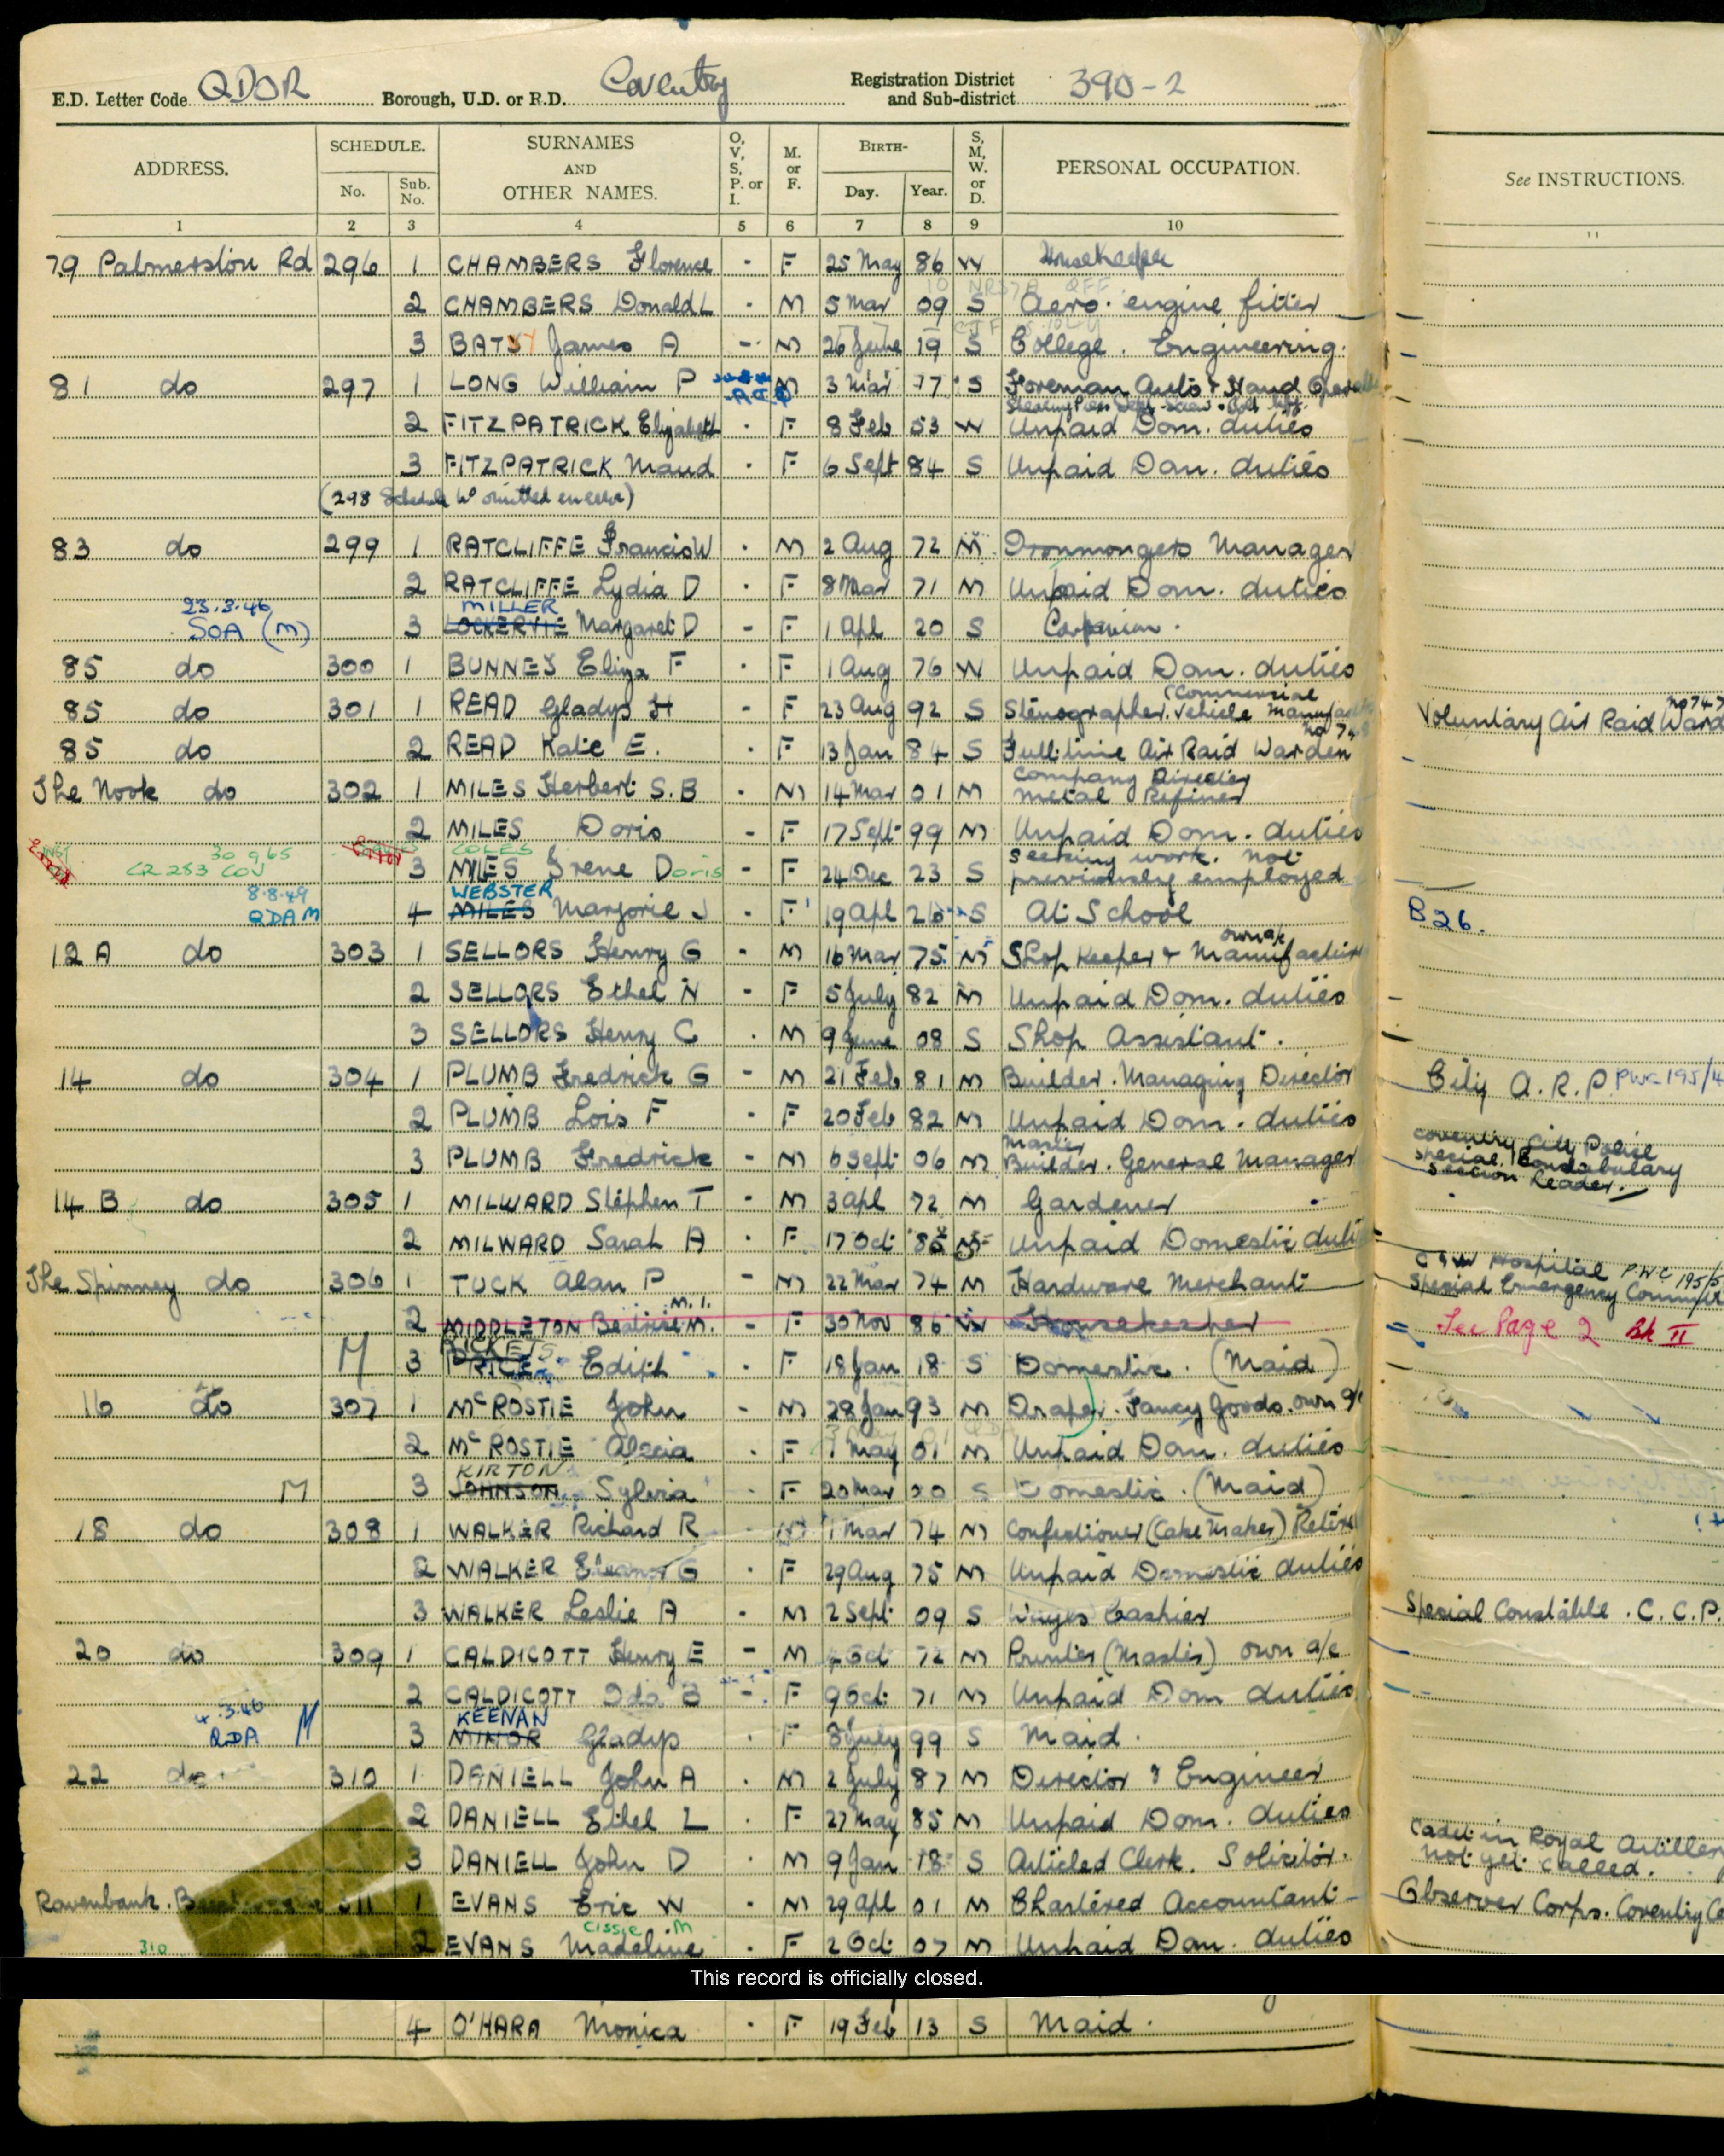 E.D. Letter Code QDOR Borough, U.D. or R.D. Coventry Registration District and Sub-district 390-2
ADDRESS. SCHEDULE. No. Sub. No. SURNAMES AND OTHER NAMES. O, V, S, P. or I. M. or F. BIRTH- Day. Year. S, M, W. or D. PERSONAL OCCUPATION. See INSTRUCTIONS.
1 2 3 4 5 6 7 8 9 10 11
79 Palmerston Rd 296 1 CHAMBERS Florence - F 25 May 86 W Housekeeper
2 CHAMBERS Donald L - M 5 Mar 09 S Aero. engine fitter
3 James A - M 26 June 19 S College. Engineering.
81 do 297 1 LONG William P M 3 Mar 77 S Foreman Auto & Hand
2 FITZPATRICK Elizabeth - F 8 Feb 53 W Unpaid Dom. duties
3 FITZPATRICK Maud - F 6 Sept 84 S Unpaid Dom. duties
(298 Schedule No omitted in error)
83 do 299 1 RATCLIFFE Francis W - M 2 Aug 72 M Ironmongers Manager
2 RATCLIFFE Lydia D - F 8 Mar 71 M Unpaid Dom. duties
23.3.46 MILLER
SOA (M) 3 LOCKERVIE Margaret D - F 1 Apl 20 S Companion.
85 do 300 1 BUNNEY Eliza F - F 1 Aug 76 W Unpaid Dom. duties
85 do 301 1 READ Gladys H - F 23 Aug 92 S Stenographer. (Commercial Vehicle Voluntary Air Raid
85 do 2 READ Katie E. - F 13 Jan 84 S Full time Air Raid Warden
The Nook do 302 1 MILES Herbert S.B - M 14 Mar 01 M Company Director Metal Refiner
2 MILES Doris - F 17 Sept 99 M Unpaid Dom. duties
30 9 65 COLES
CR 283 COV 3 MILES Irene Doris - F 24 Dec 23 S Seeking work. Not previously employed
8.8.49 WEBSTER
QDAM 4 MILES Marjorie J - F 19 Apl 26 S At School B26.
12A do 303 1 SELLORS Henry G - M 16 Mar 75 M Shop Keeper &
2 SELLORS Ethel N - F 5 July 82 M Unpaid Dom. duties
3 SELLORS Henry C - M 9 June 08 S Shop Assistant.
14 do 304 1 PLUMB Fredrick G - M 21 Feb 81 M Builder. Managing Director City A.R.P. PWC 195/4
2 PLUMB Lois F - F 20 Feb 82 M Unpaid Dom. duties
3 PLUMB Fredrick - M 6 Sept 06 M Master Builder. General Manager Coventry City Police Special Constabulary Section Leader.
14 B do 305 1 MILWARD Stephen T - M 3 Apl 72 M Gardener
2 MILWARD Sarah A - F 17 Oct Unpaid Domestic
The Spinney do 306 1 TUCK Alan P - M 22 Mar 74 M Hardware Merchant Hospital PWC 195/5 Special Emergency
2 MIDDLETON Beatrice M. - F 30 Nov 86 W Housekeeper See Page 2 Bk II
M 3 PRICE Edith - F 18 Jan 18 S Domestic. (Maid)
16 do 307 1 McROSTIE John - M 28 Jan 93 M Draper. Fancy Goods. own a/c
2 McROSTIE - F 1 May 01 M Unpaid Dom. duties
KIRTON
M 3 JOHNSON Sylvia - F 20 Mar 20 S Domestic. (Maid)
18 do 308 1 WALKER Richard R - M 1 Mar 74 M Confectioner (Cake Maker)
2 WALKER Eleanor G - F 29 Aug 75 M Unpaid Domestic duties
3 WALKER Leslie A - M 2 Sept 09 S Wages Cashier Special Constable. C.C.P.
20 do 309 1 CALDICOTT Henry E - M 4 Oct 72 M Printer (Master) own a/c
2 CALDICOTT Ida B - F 9 Oct 71 M Unpaid Dom duties
4.3.46 KEENAN
QDA M 3 MINOR Gladys - F 8 July 99 S Maid.
22 do 310 1 DANIELL John A - M 2 July 87 M Director & Engineer
2 DANIELL Ethel L - F 27 May 85 M Unpaid Dom. duties
3 DANIELL John D - M 9 Jan 18 S Articled Clerk. Solicitor. Cadet in Royal Artillery Not yet called.
Ravenbank. 311 1 EVANS Eric W - M 29 Apl 01 M Chartered Accountant Observer Corps. Coventry
Cissie M
310 2 EVANS Madeline - F 2 Oct 07 M Unpaid Dom. duties
This record is officially closed.
4 O'HARA Monica - F 19 Feb 13 S Maid.